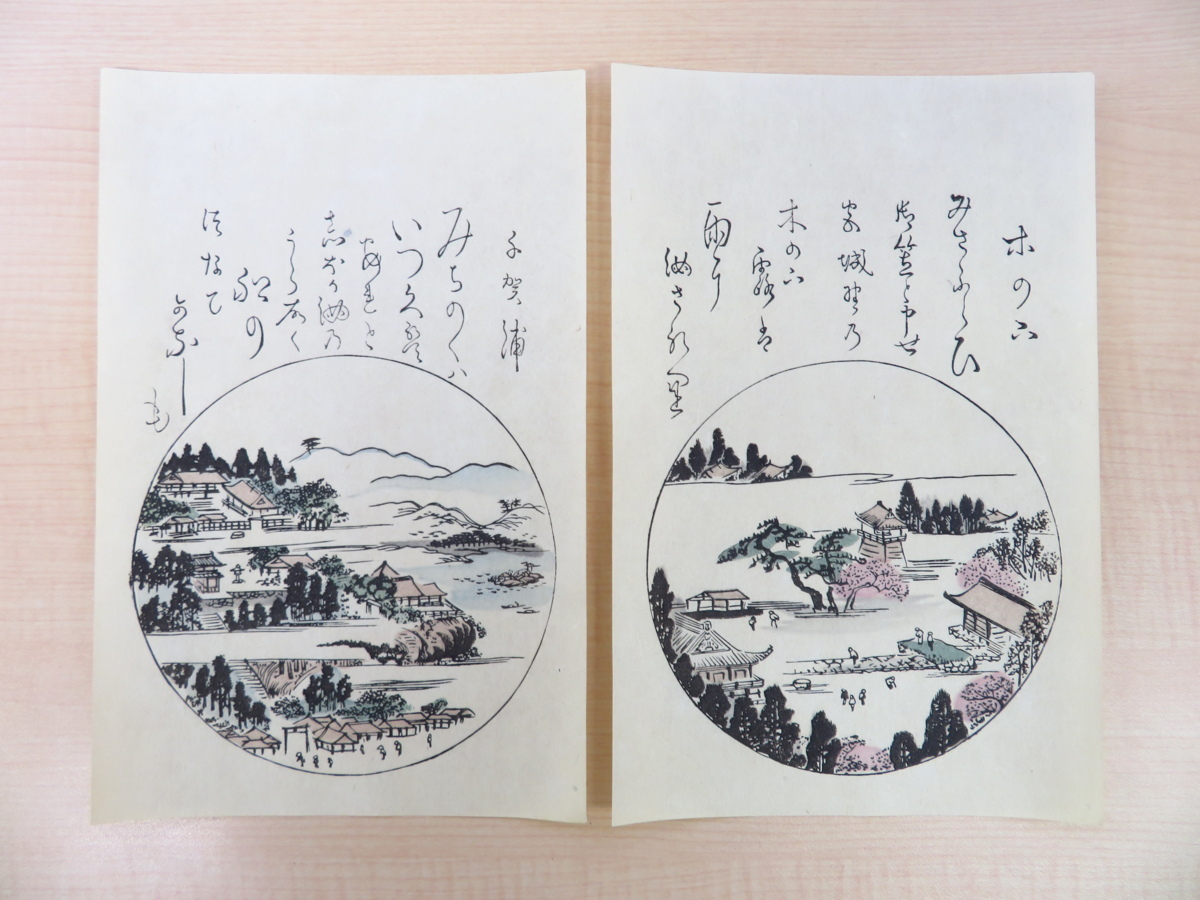 木の下
みさふらひ
御笠と申せ
宮城野乃
木の下
露は
雨に
満され里
千賀浦
みちのくハ
いつくは
あれと
志ほか満乃
うらこく
船の
つなて
かなし
も